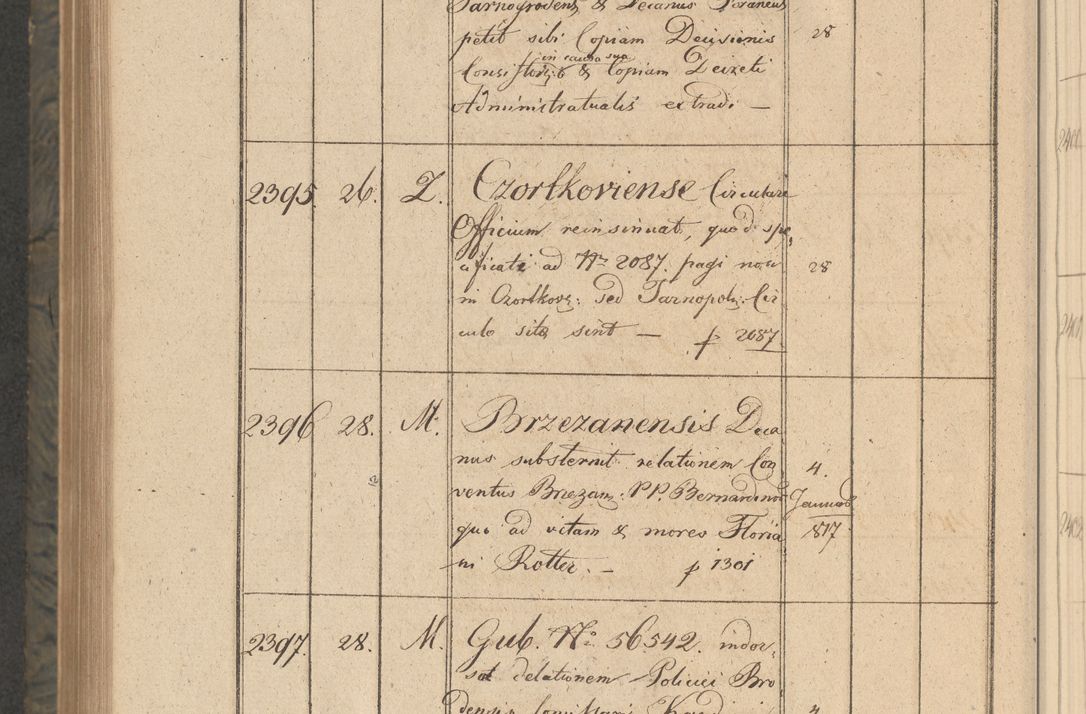 Tarnogrodens & Decanus Foraneus
petit sibi Copiam Decisionis 28
in causa sua
Consistorz & Copiam Decreti
Administratualis extradi —
2395. 26. Z. Czortkoviense Circulare
Officium reinsinuat, quod spe,
cificati ad Nr 2087. pagi non 28
in Czortkovz: sed Tarnopolz: Cir
culo sitz sint — p 2087
2396 28. M. Brzezanensis Deca
nus substernit relationem Con 4.
ventus Brzezanz: PP. Bernardinor Januar
quo ad vitam & mores Floria 817
ni Rotter. — p 1301
2397. 28. M. Gub. No 56542. indor,
sat delationem Policiei Bro
densis 4